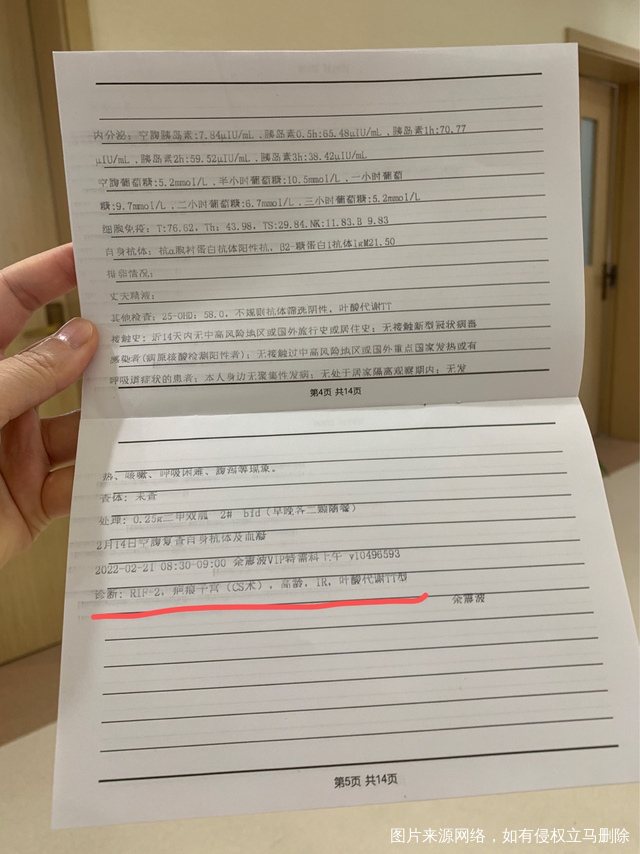 内分泌: 空腹胰岛素:7.84μIU/mL ,胰岛素0.5h:65.48μIU/mL ,胰岛素1h:70.77
μIU/mL ,胰岛素2h:59.52μIU/mL ,胰岛素3h:38.42μIU/mL
空腹葡萄糖:5.2mmol/L ,半小时葡萄糖:10.5mmol/L ,一小时葡萄
糖:9.7mmol/L ,二小时葡萄糖:6.7mmol/L ,三小时葡萄糖:5.2mmol/L
细胞免疫: T:76.62, Th: 43.98, TS:29.84,NK:11.83,B 9.83
自身抗体: 抗α胞衬蛋白抗体阳性抗, B2-糖蛋白1抗体IgM21.50
排卵情况:
丈夫精液:
其他检查: 25-OHD: 58.0, 不规则抗体筛选阴性, 叶酸代谢TT
接触史: 近14天内无中高风险地区或国外旅行史或居住史; 无接触新型冠状病毒
感染者(病原核酸检测阳性者); 无接触过中高风险地区或国外重点国家发热或有
呼吸道症状的患者; 本人身边无聚集性发病; 无处于居家隔离观察期内; 无发
第4页 共14页
热、咳嗽、呼吸困难、腹泻等现象。
查体: 未查
处理: 0.25g二甲双胍 2# bid (早晚各二颗随餐)
2月14日空腹复查自身抗体及血脂
2022-02-21 08:30-09:00 余VIP特需科上午 y10496593
诊断: RIF-2, 疤痕子宫 (CS术) , 高龄, IR, 叶酸代谢TT型
余
第5页 共14页
图片来源网络，如有侵权立马删除